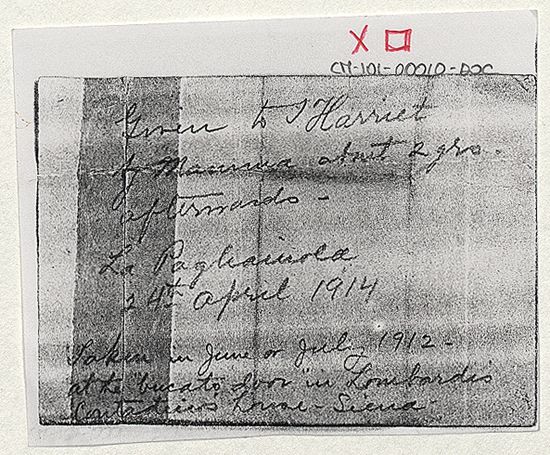 X
CM-101-00010-DOC
Given to S Harriet
by Mamma about 2 yrs.
afterwards -
La Pagliaiuola
24th April 1914
Taken in June or July 1912 -
at the "bucato" door in Lombardi's
Contadino's house - Siena -